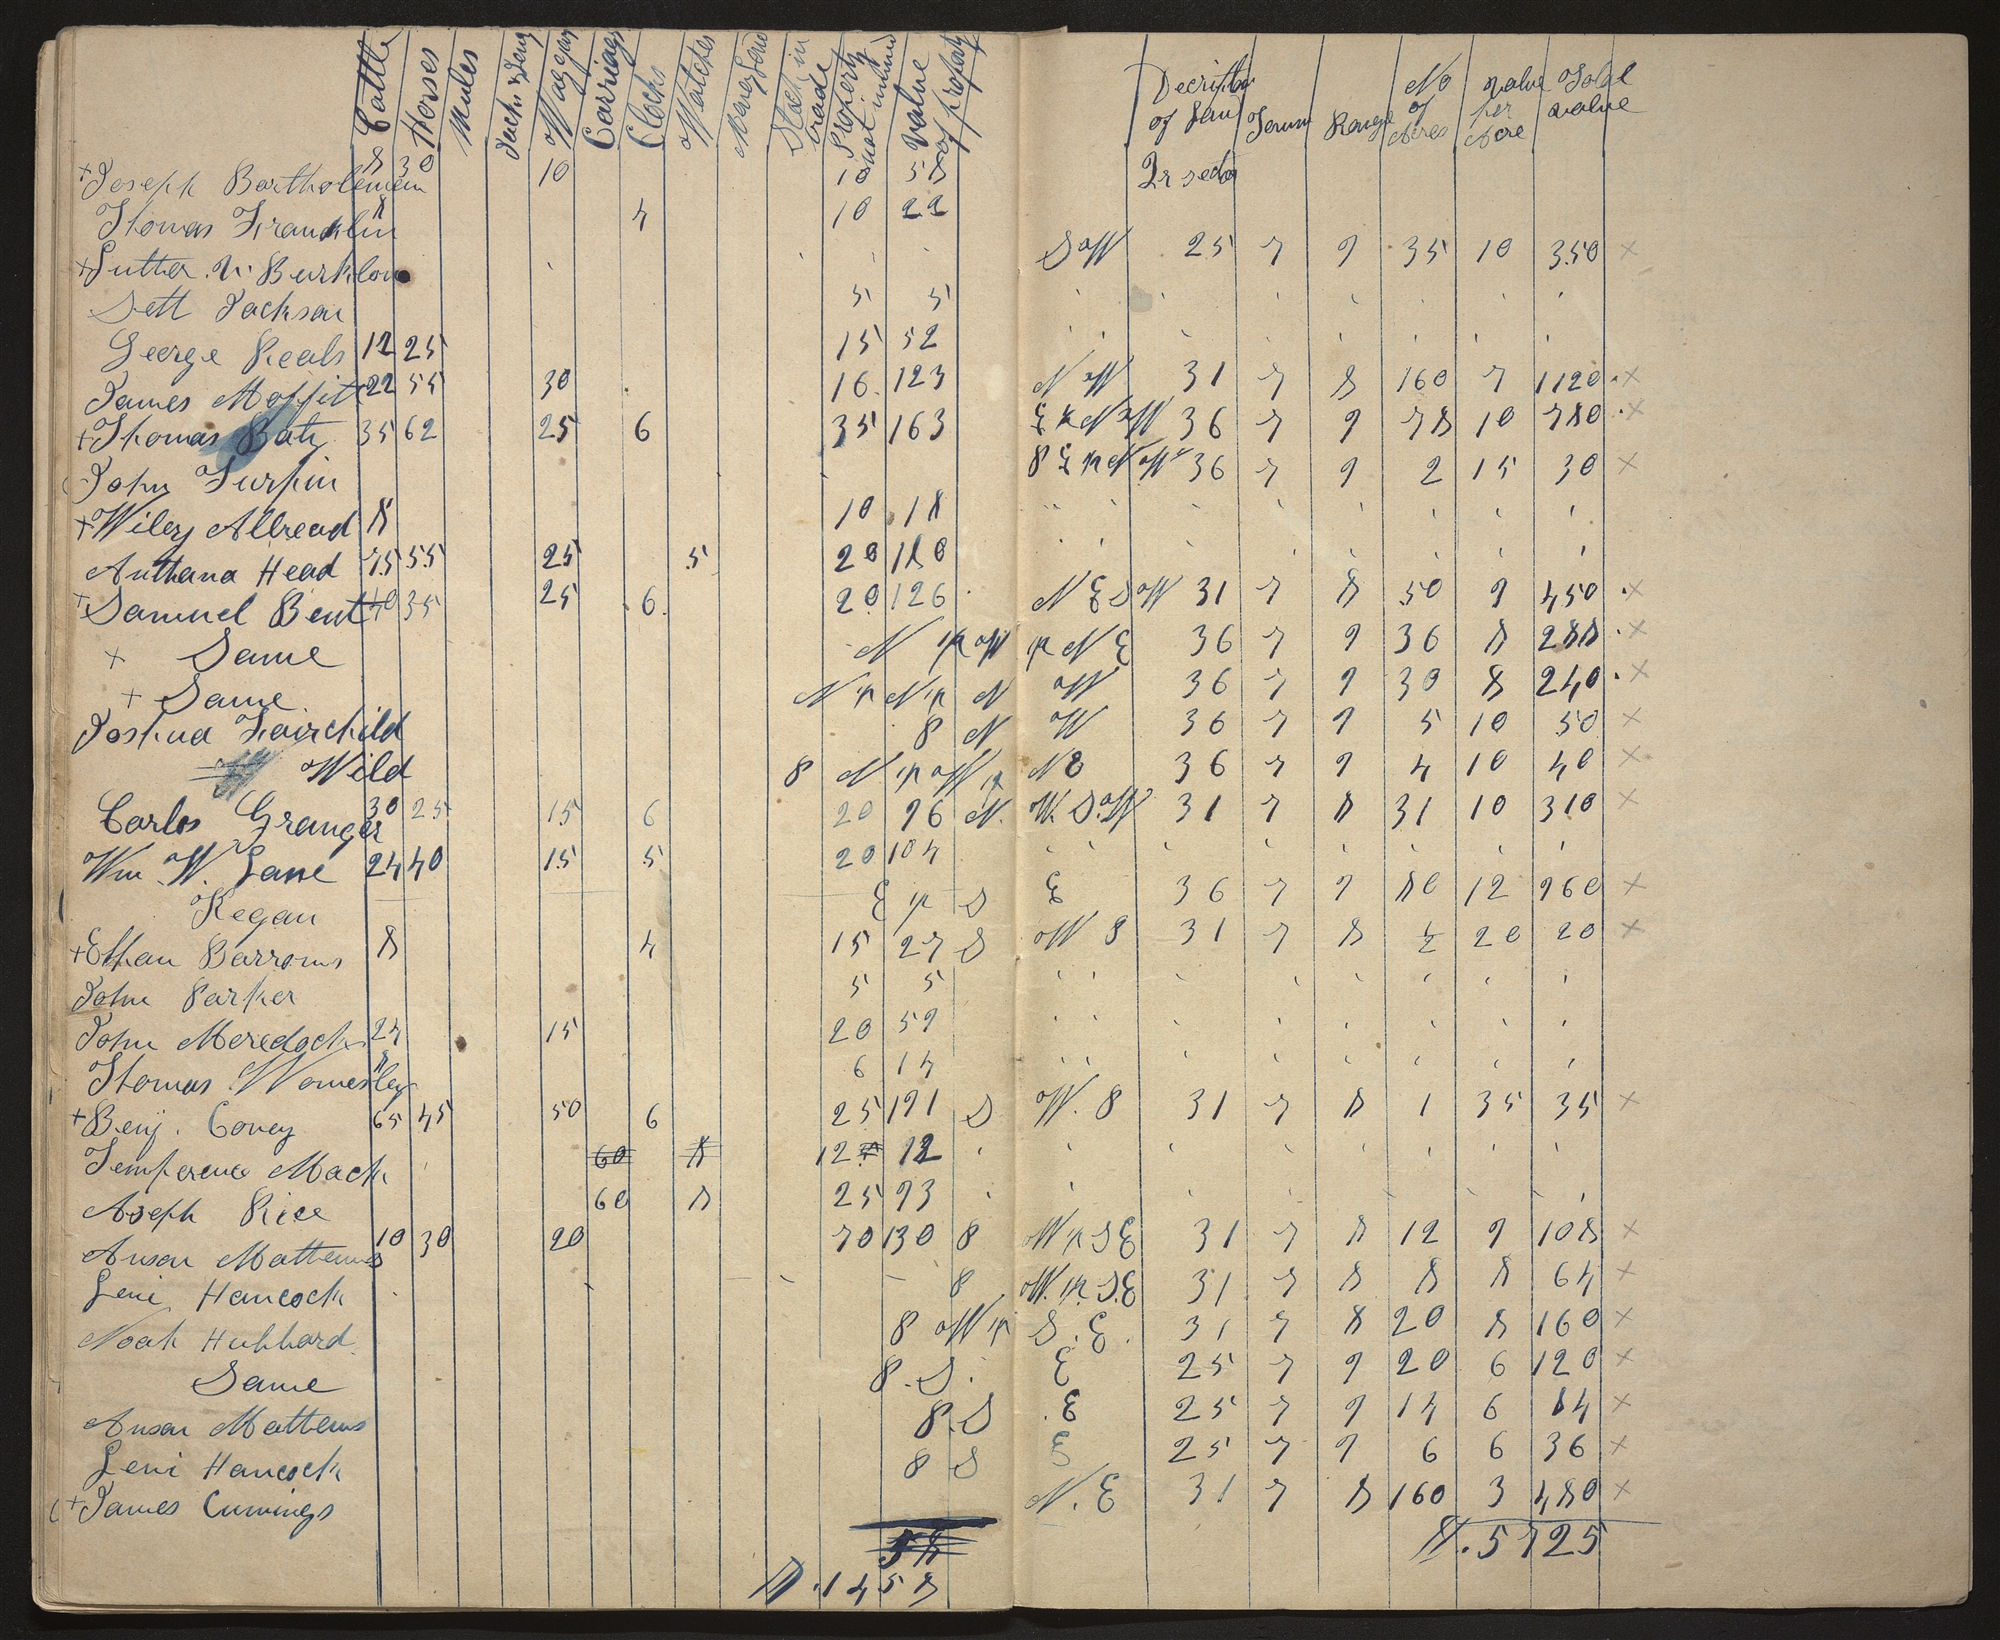 Cattle Horses Mules Jacks & Jeny Waggons Carriags Clocks Watches Money Lend Stock in trade Property not inumd value of property Decription of Lan Town Range No of Acres value per Acre Total value
+ Joseph Bartholemew 8 30 10 10 58 Qr sectn
Thomas Francklin 8 4 10 22
+ Luther N. Burklow S W 25 7 9 35 10 350 x
Sett Jackson 5 5
George Reals 12 25 15 52
James Moffitt 22 55 30 16 123 N W 31 7 8 160 7 1120 x
+ Thomas Baty 35 62 25 6 35 163 E ½ N W 36 7 9 78 10 780 x
John Turpin P E ½ N W 36 7 9 2 15 30 x
+ Wiley Allread 8 10 18
Anthana Head 75 55 25 5 20 180
+ Samuel Bent 40 35 25 6 20 126 N E S W 31 7 8 50 9 450 x
+ Same N ½ W ½ N E 36 7 9 36 8 288 x
+ Same N ½ N ½ N W 36 7 9 30 8 240 x
Joshua Fairchild P N W 36 7 9 5 10 50 x
Wild P N ½ W ½ N E 36 7 9 4 10 40 x
Carlos Granger 30 25 15 6 20 96 N. W. S. W 31 7 8 31 10 310 x
Wm. W. Lane 24 40 15 5 20 104
Regan E ½ S E 36 7 9 80 12 960 x
+ Ethan Barrows 8 4 15 27 S W P 31 7 8 ½ 20 20 x
John Parker 5 5
John Meredock 24 15 20 59
Thomas Womesley 8 6 14
+ Benj. Covey 65 45 50 6 25 191 S W. P 31 7 8 1 35 35 x
Temperence Mack 60 8 12 12
Aseph Rice 60 8 25 93
Anson Mathews 10 30 20 70 130 P W ½ S E 31 7 8 12 9 108 x
Levi Hancock P W. ½. S. E 31 7 8 8 8 64 x
Noah Hubbard P W ½ S. E. 31 7 8 20 8 160 x
Same P. S. E 25 7 9 20 6 120 x
Anson Mathews P. S. E 25 7 9 14 6 84 x
Levi Hancock P S E 25 7 9 6 6 36 x
+ James Cumings N. E 31 7 8 160 3 480 x
58 $. 5725
$. 1458